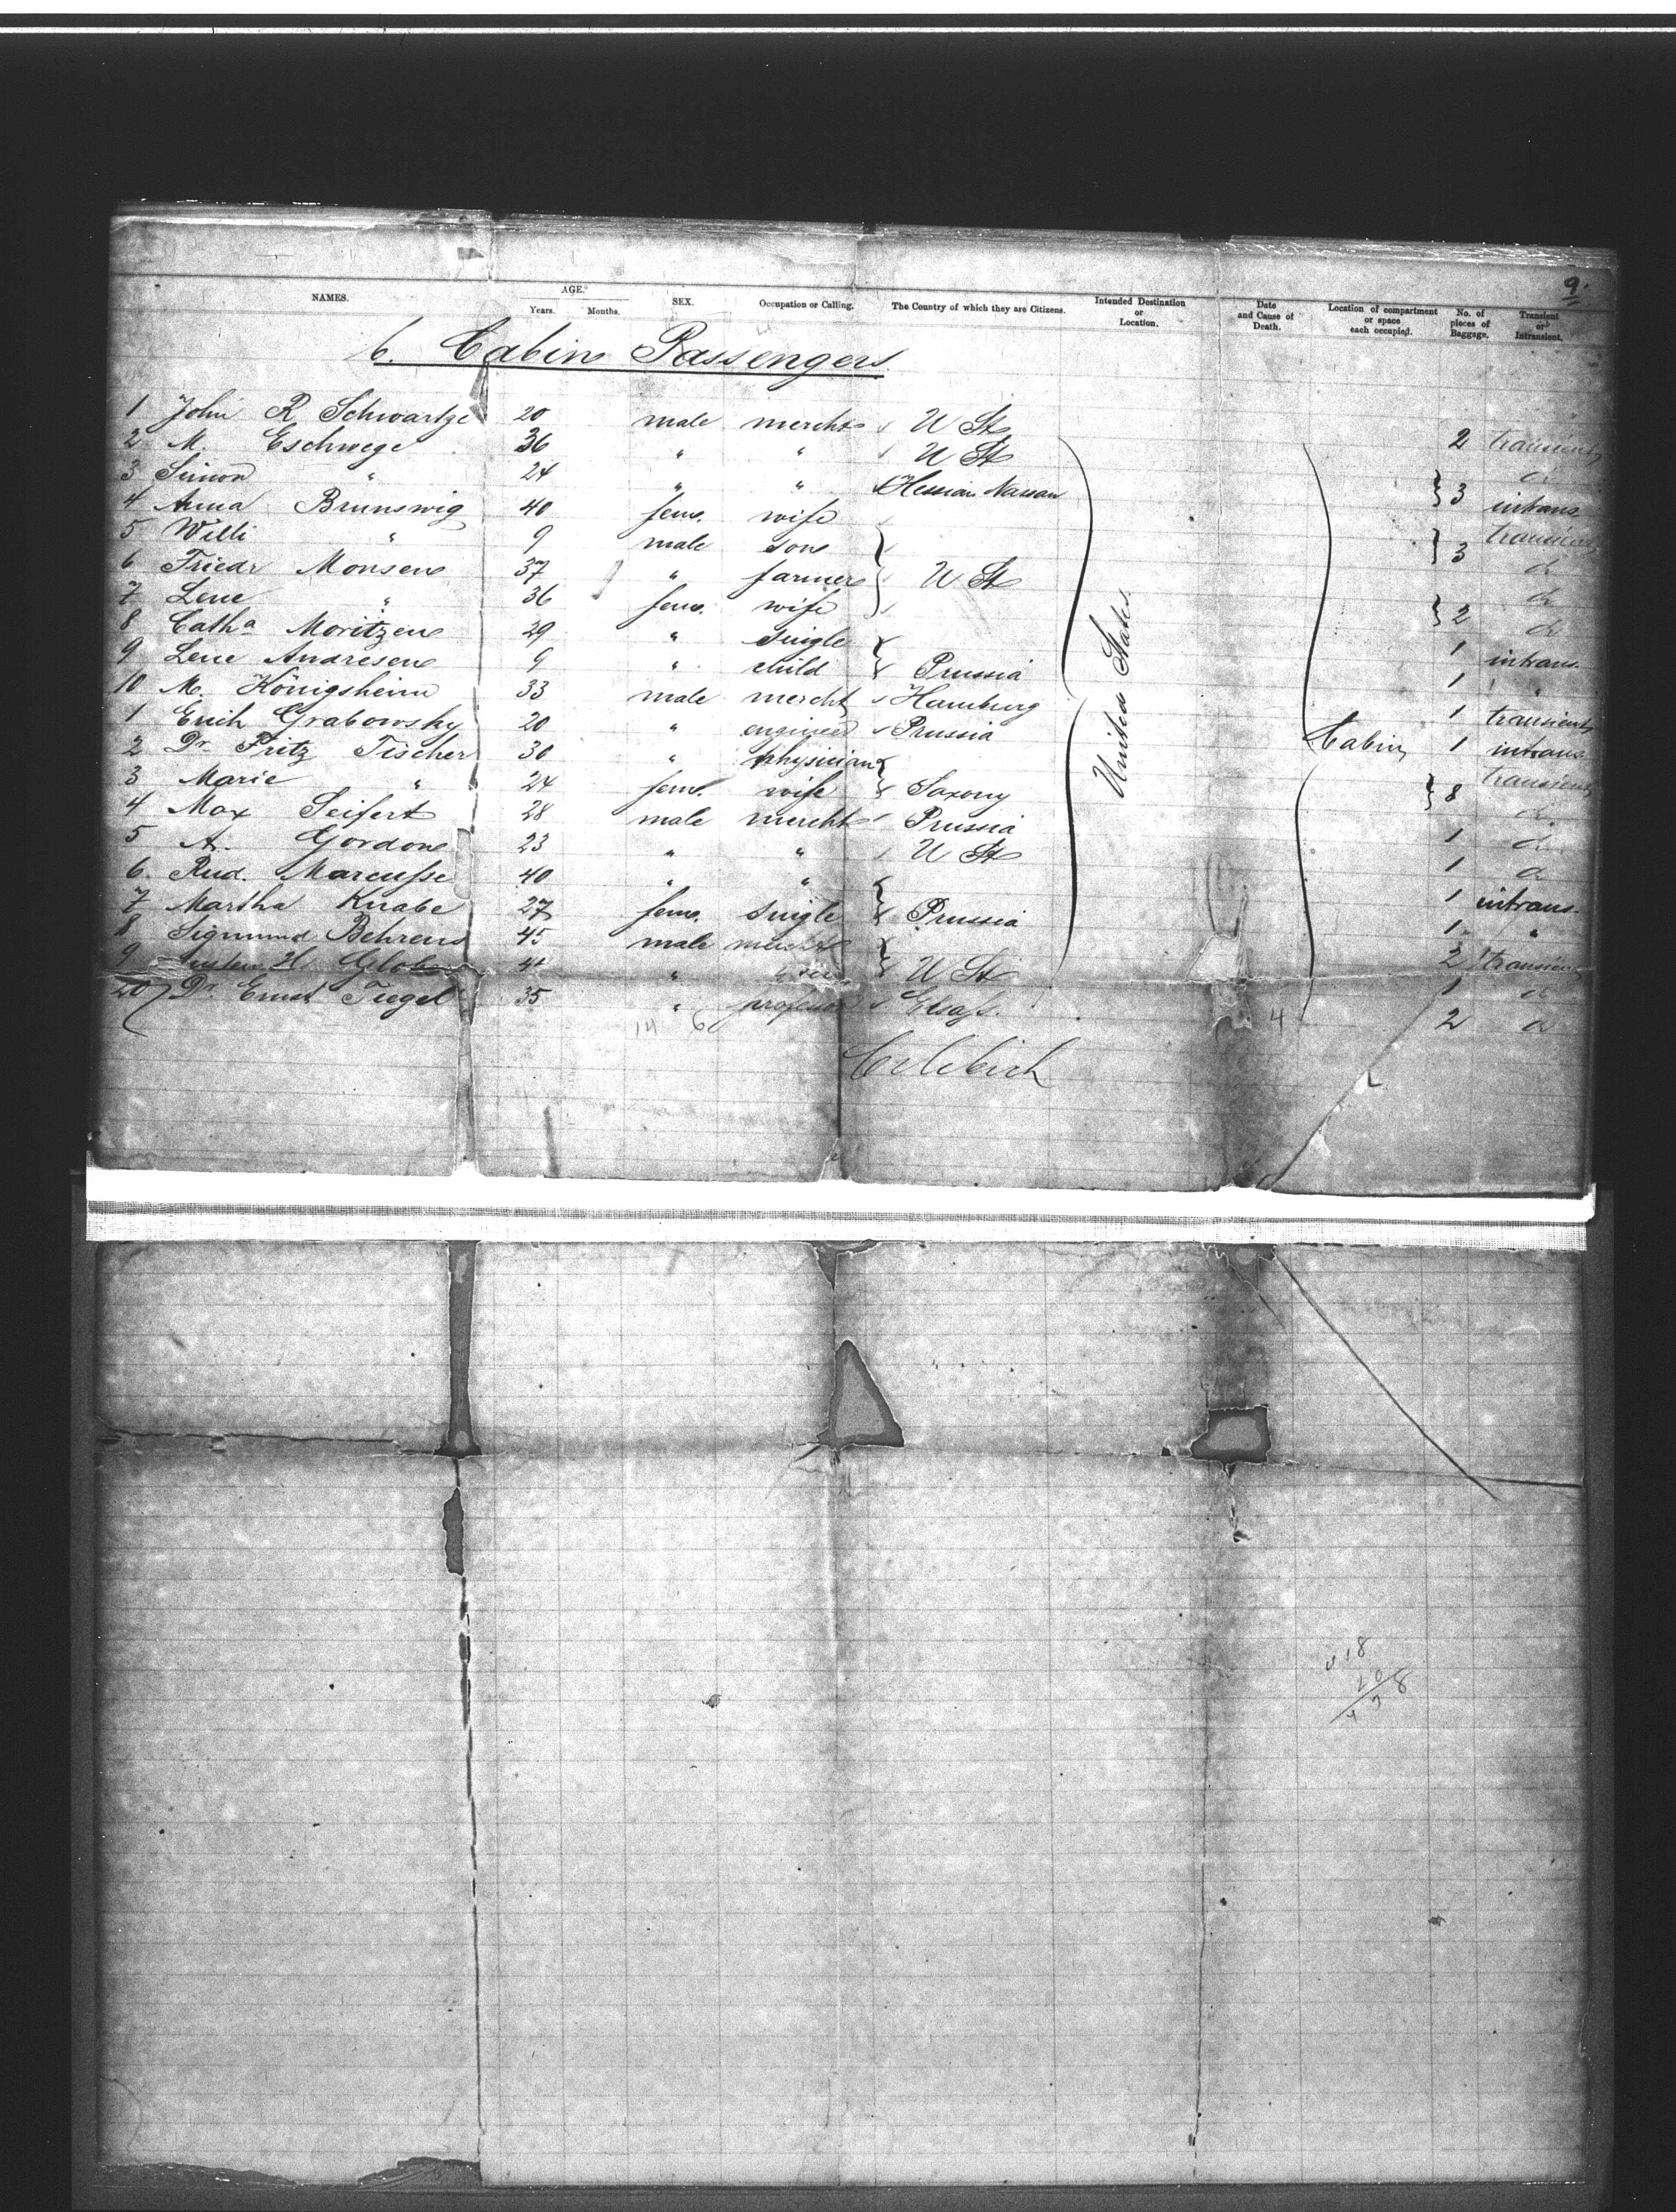 9.
NAMES. AGE. Years. Months. SEX. Occupation or Calling. The Country of which they are Citizens. Intended Destination or Location. Date and Cause of Death. Location of compartment or space each occupied. No. of pieces of Baggage. Transient or Intransient.
6. Cabin Passengers.
1 John R Schwartze 20 male mercht U St 2 transient
2 M. Eschwege 36 " " U St do
3 Simon " 24 " " Hessian Nassau } 3 intrans.
4 Anna Brunswig 40 fem. wife transient
5 Willi " 9 male son } 3 do
6 Friedr Monsen 37 " farmer U St do
7 Lene " 36 fem. wife } 2 do
8 Cath a Moritzen 29 " single 1 intrans.
9 Lene Andresen 9 " child Prussia 1 "
10 M. Königsheim 33 male mercht Hamburg 1 transient
1 Erich Grabowsky 20 " engineer Prussia 1 intrans
2 Dr. Fritz Fischer 30 " physician transient
3 Marie " 24 fem. wife Saxony } 8 do.
4 Max Seifert 28 male mercht Prussia 1 do
5 A. Gordon 23 " " U St 1 do
6. Rud. Marcusse 40 " " 1 intrans.
7 Martha Knabe 27 fem. single Prussia 1 "
8 Sigmund Behrens 45 male mercht 2 transient
9 H. Globe " U St 1 do
20 Dr. Ernst Tiegel 35 " professor Elsass. 2 do
United States.
Cabin
14 6 4
18
20